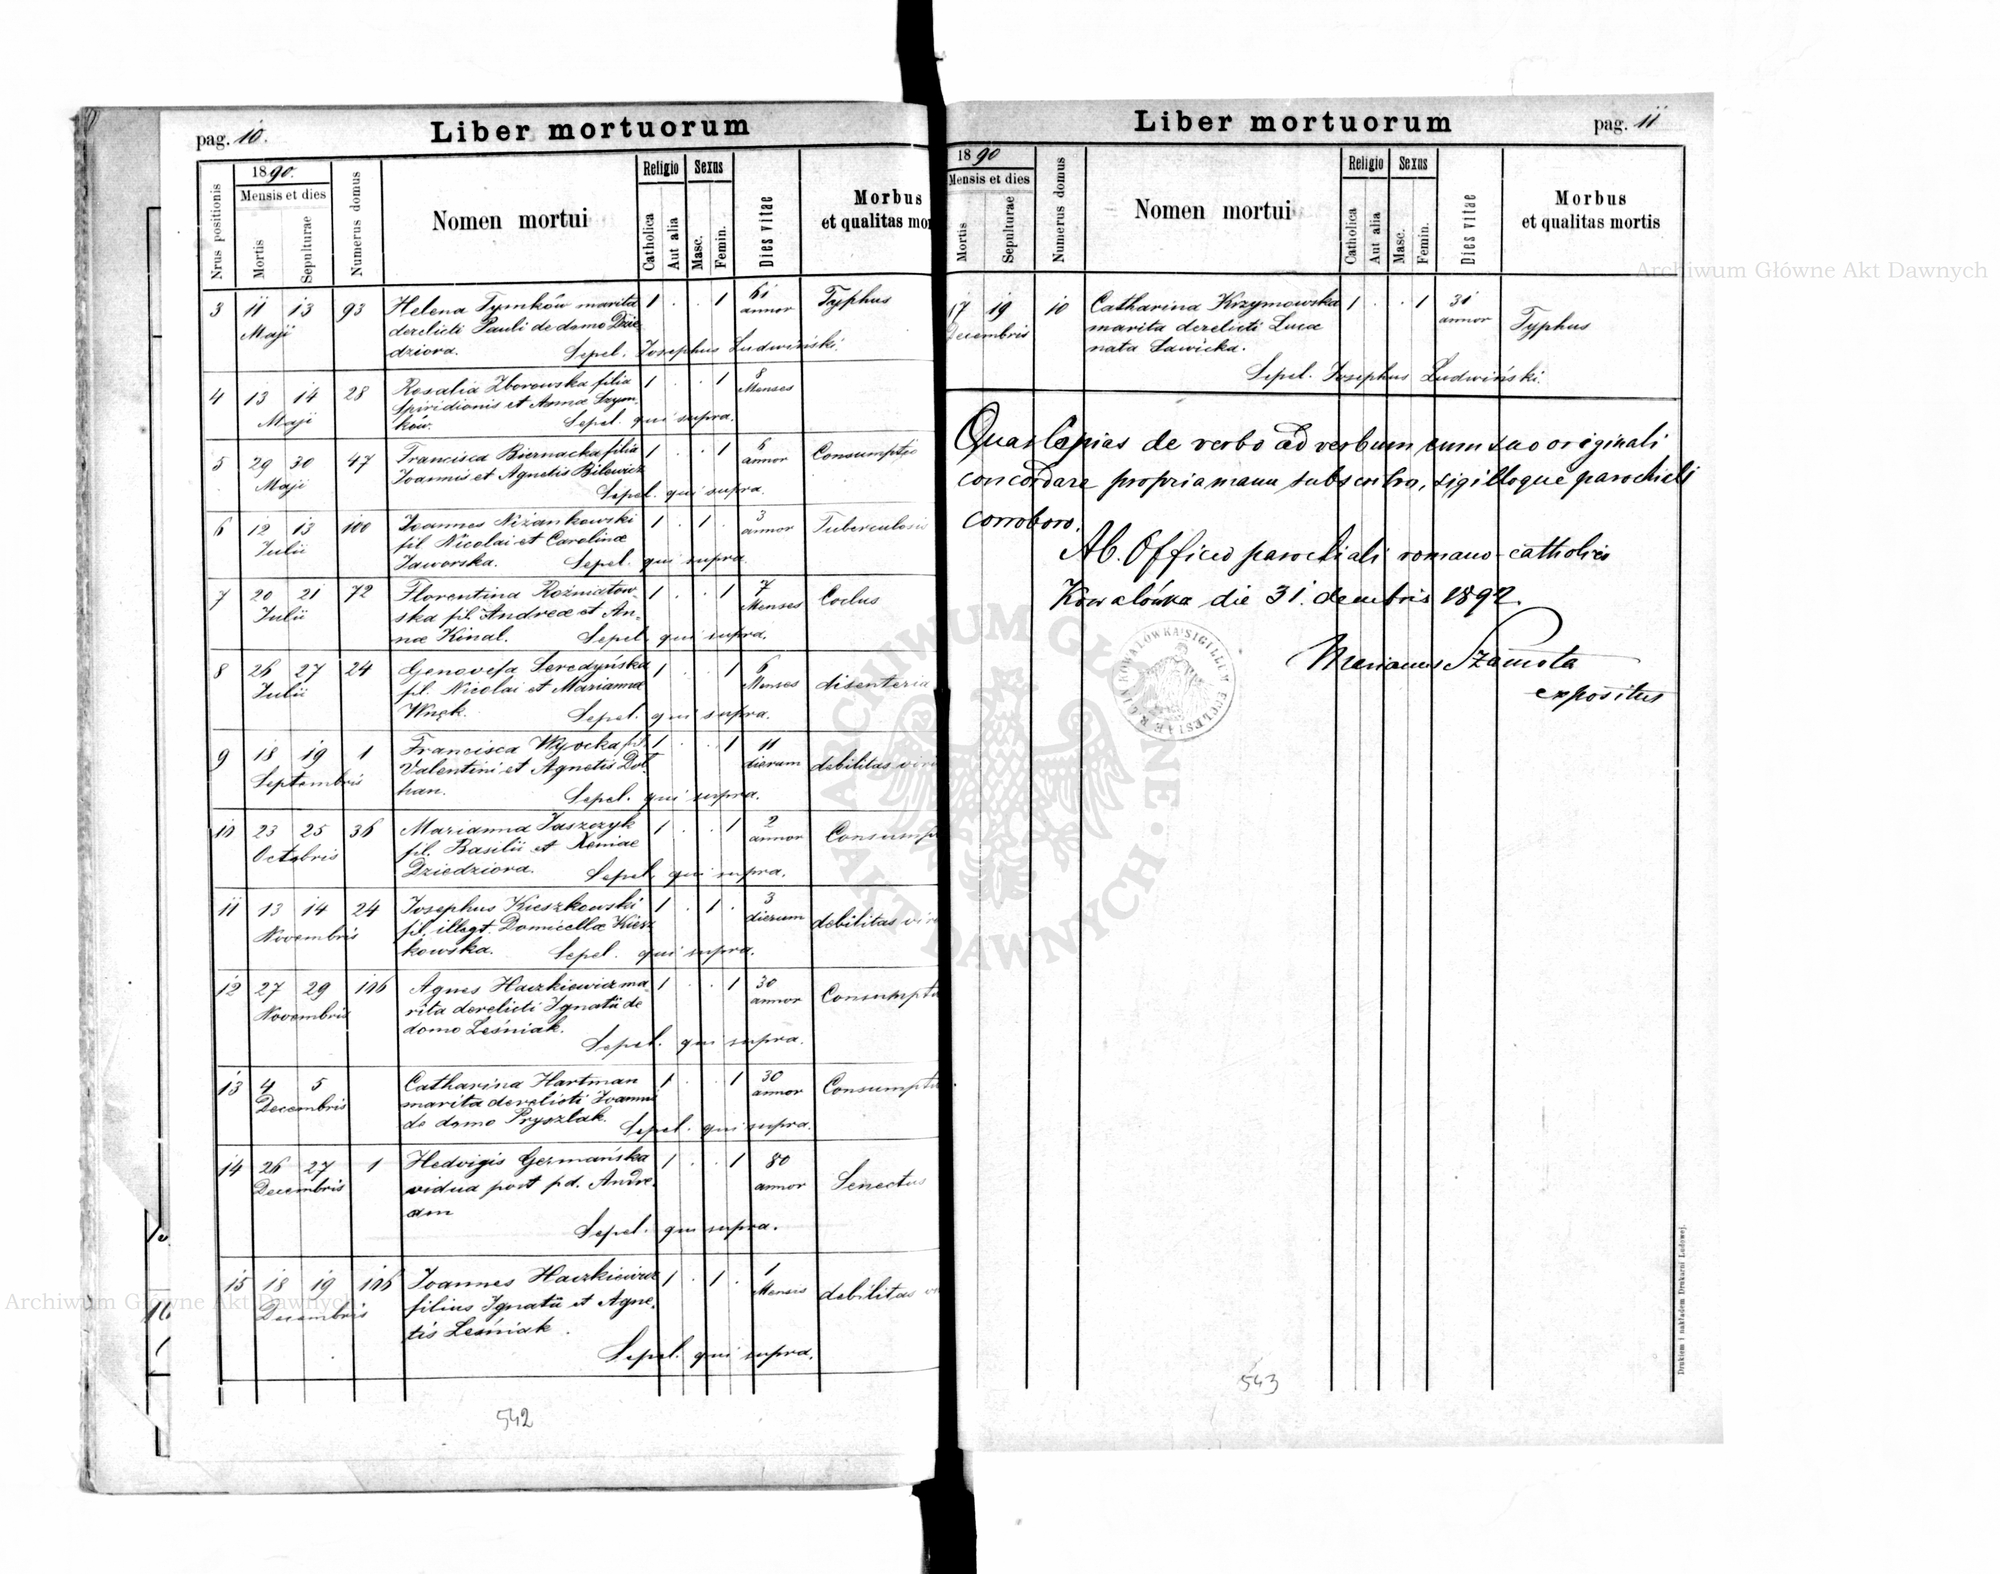 pag. 10.
Liber mortuorum
Nrus positionis
1890.
Mensis et dies
Mortis
Sepulturae
Numerus domus
Nomen mortui
Religio
Catholica
Aut alia
Sexus
Masc.
Femin.
Dies vitae
Morbus
et qualitas mor
3 11 13 93 Helena Tymków marita 1 . . 1 61 Typhus
Maji derelicti Pauli de domo Dzie annor
dziora. Sepel. Josephus Ludwiński.
4 13 14 28 Rosalia Zborowska filia 1 . . 1 8
Maji Spiridionis et Annæ Szym- Menses
ków. Sepel. qui supra.
5 29 30 47 Francisca Biernacka filia 1 . . 1 6 Consumptio
Maji Joannis et Agnetis Bilewicz annor
Sepel. qui supra.
6 12 13 100 Joannes Niżankowski 1 . 1 . 3 Tuberculosis
Julii fil. Nicolai et Carolinæ annor
Jaworska. Sepel. qui supra.
7 20 21 72 Florentina Rożniatow- 1 . . 1 7 Coclus
Julii ska fil. Andreæ et An- Menses
næ Kinal. Sepel. qui supra.
8 26 27 24 Genovefa Seredyńska 1 . . 1 6 disenteria
Julii fil. Nicolai et Marianna Menses
Wnęk. Sepel. qui supra.
9 18 19 1 Francisca Wysocka fil. 1 . . 1 11 debilitas
Septembris Valentini et Agnetis Doł dierum
han. Sepel. qui supra.
10 23 25 36 Marianna Jaszczyk 1 . . 1 2 Consump
Octobris fil. Basilii et Xeniae annor
Dziedziora. Sepel. qui supra.
11 13 14 24 Josephus Kieszkowski 1 . 1 . 3 debilitas vi
Novembris fil. illegt. Domicellæ Kiesz dierum
kowska. Sepel. qui supra.
12 27 29 106 Agnes Haczkiewicz ma- 1 . . 1 30 Consumpt
Novembris rita derelicti Ignatii de annor
domo Leśniak.
Sepel. qui supra.
13 4 5 Catharina Hartman 1 . . 1 30 Consumpt
Decembris marita derelicti Joannis annor
de domo Pryszlak. Sepel. qui supra.
14 26 27 1 Hedvigis Germańska 1 . . 1 80 Senectus
Decembris vidua post pd. Andre- annor
am
Sepel. qui supra.
15 18 19 106 Joannes Haczkiewicz 1 . 1 . 1 debilitas
Decembris filius Ignatii et Agne- Mensis
tis Leśniak.
Sepel. qui supra.
542
Liber mortuorum
pag. 11
1890
Mensis et dies
Mortis
Sepulturae
Numerus domus
Nomen mortui
Religio
Catholica
Aut alia
Sexus
Masc.
Femin.
Dies vitae
Morbus
et qualitas mortis
17 19 10 Catharina Krzymowska 1 . . 1 31 Typhus
Decembris marita derelicti Lucæ annor
nata Sawicka.
Sepel. Josephus Ludwiński.
Quas Copias de verbo ad verbum cum suo originali
concordare propria manu subscribo, sigilloque parochiali
corroboro.
Ab. Officio parochiali romano-catholico
Kowalówka die 31. decembris 1892.
Marianus Szamota
expositus
543
Drukiem i nakładem Drukarni Ludowej.
Archiwum Główne Akt Dawnych
Archiwum Główne Akt Dawnych
ARCHIWUM GŁÓWNE AKT DAWNYCH